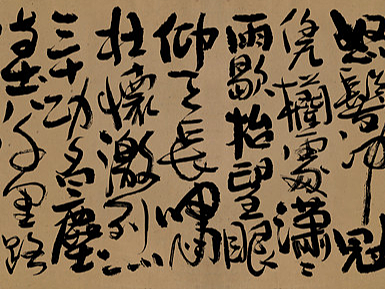 怒髮冲冠
凭欄處瀟々
雨歇抬望眼
仰天長嘯
壯懷激烈
三十功名塵
與土八千里路